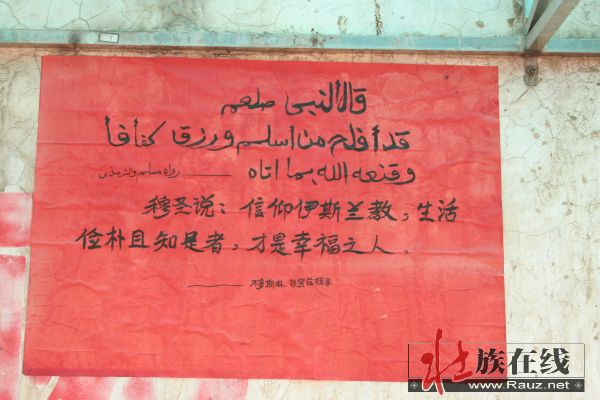 قال النبي صلعم
قد أفلح من اسلم ورزق كفافا
وقنعه الله بما اتاه —— رواه مسلم والترمذي
穆圣说：信仰伊斯兰教，生活
俭朴且知足者，才是幸福之人。
壮族在线
www.Rauz.net